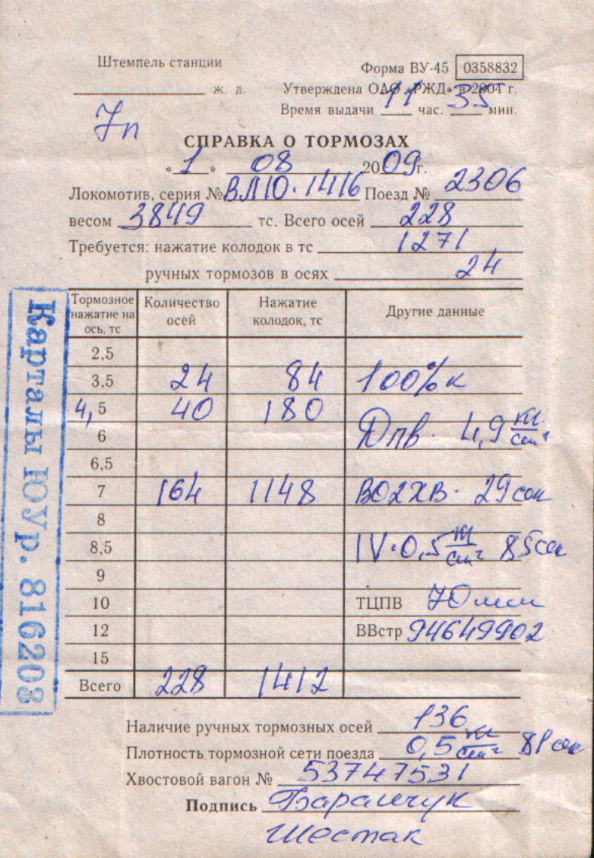 Штемпель станции
Форма ВУ-45 0358832
ж. д. Утверждена ОАО «РЖД» в 2004 г.
Время выдачи 11 час. 35 мин.
7п
СПРАВКА О ТОРМОЗАХ
« 1 » 08 2009г.
Локомотив, серия № ВЛ10-1416 Поезд № 2306
весом 3849 тс. Всего осей 228
Требуется: нажатие колодок в тс 1271
ручных тормозов в осях 24
Тормозное нажатие на ось, тс Количество осей Нажатие колодок, тс Другие данные
2,5
3,5 24 84 100% к
4,5 40 180
6 Дпв. 4,9 кг/см²
6,5
7 164 1148 ВО2ХВ. 29 сек
8
8,5 IV-0,5 кг/см² 85 сек
9
10 ТЦПВ 70 мм
12 ВВстр 94649902
15
Всего 228 1412
Наличие ручных тормозных осей 136
Плотность тормозной сети поезда 0,5 кг/см² 81 сек
Хвостовой вагон № 53747531
Подпись Баранчук
Шестак
Карталы ЮУр. 816203